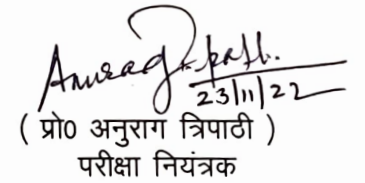 Anurag Tripathi.
23/11/22
( प्रो0 अनुराग त्रिपाठी )
परीक्षा नियंत्रक